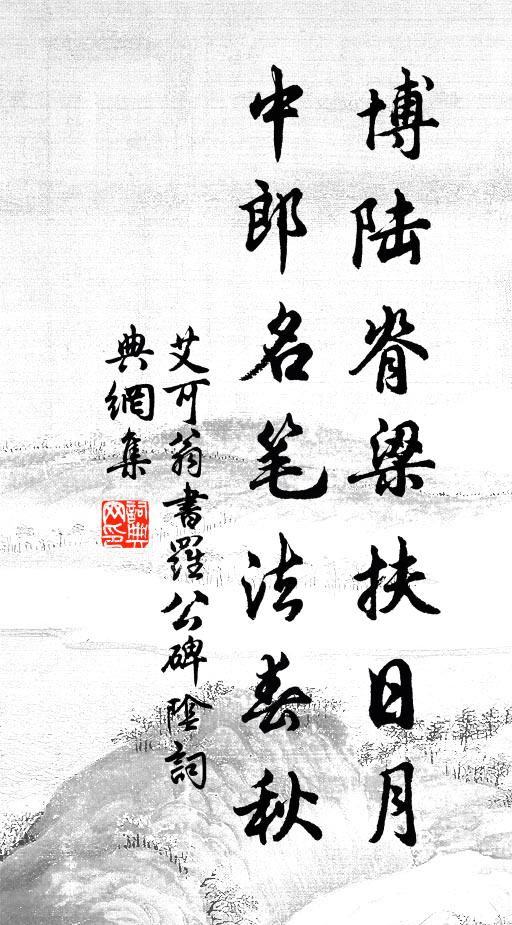 博陆脊梁扶日月
中郎名笔法春秋
艾可翁書羅公碑陰詞
典網集
詞典
网印